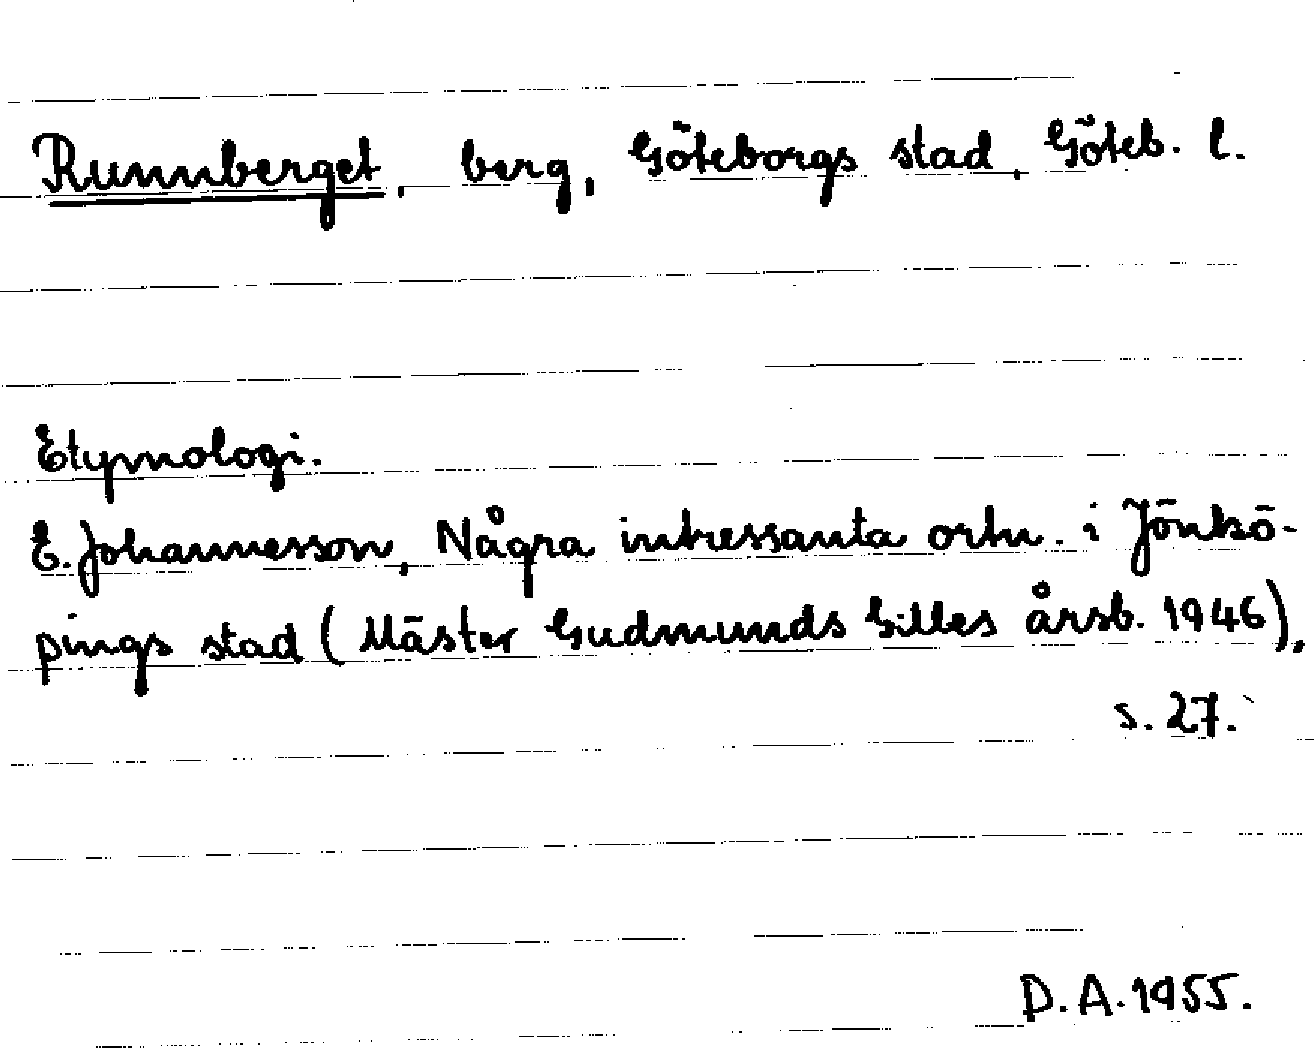 Runnberget, berg, Göteborgs stad, Göteb. l.
Etymologi.
E. Johannesson, Några intressanta ortn. i Jönkö-
pings stad (Mäster Gudmunds Gilles årsb. 1946),
s. 27.
D. A. 1955.